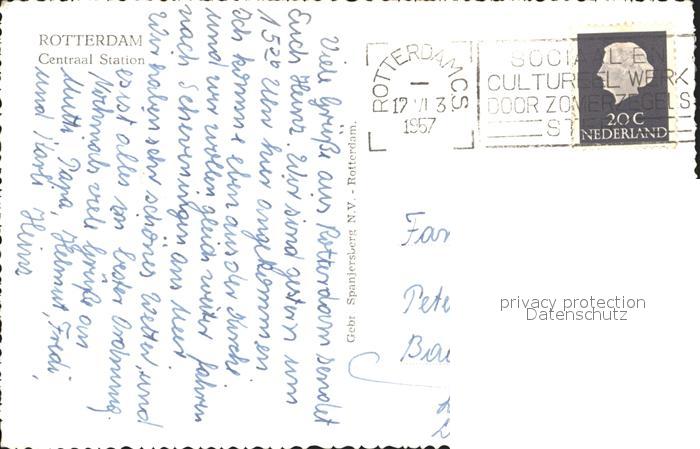 ROTTERDAM
Centraal Station
Viele Grüße aus Rotterdam sendet
Euch Heinz. Wir sind gestern um
15²⁰ Uhr hier angekommen
Ich komme eben aus der Kirche
und wir wollen gleich weiter fahren
nach Scheveningen ans Meer
Wir haben sehr schönes Wetter und
es ist alles in bester Ordnung.
Nochmals viele Grüße an
Mutti, Papa, Helmut, Fredi,
und Karli Heinz
Gebr. Spanjersberg N.V. - Rotterdam.
ROTTERDAM C.S.
17 VI 3
1957
SOCIAAL EN
CULTUREEL WERK
DOOR ZOMERZEGELS
20 C
NEDERLAND
Fam
Pete
privacy protection
Datenschutz